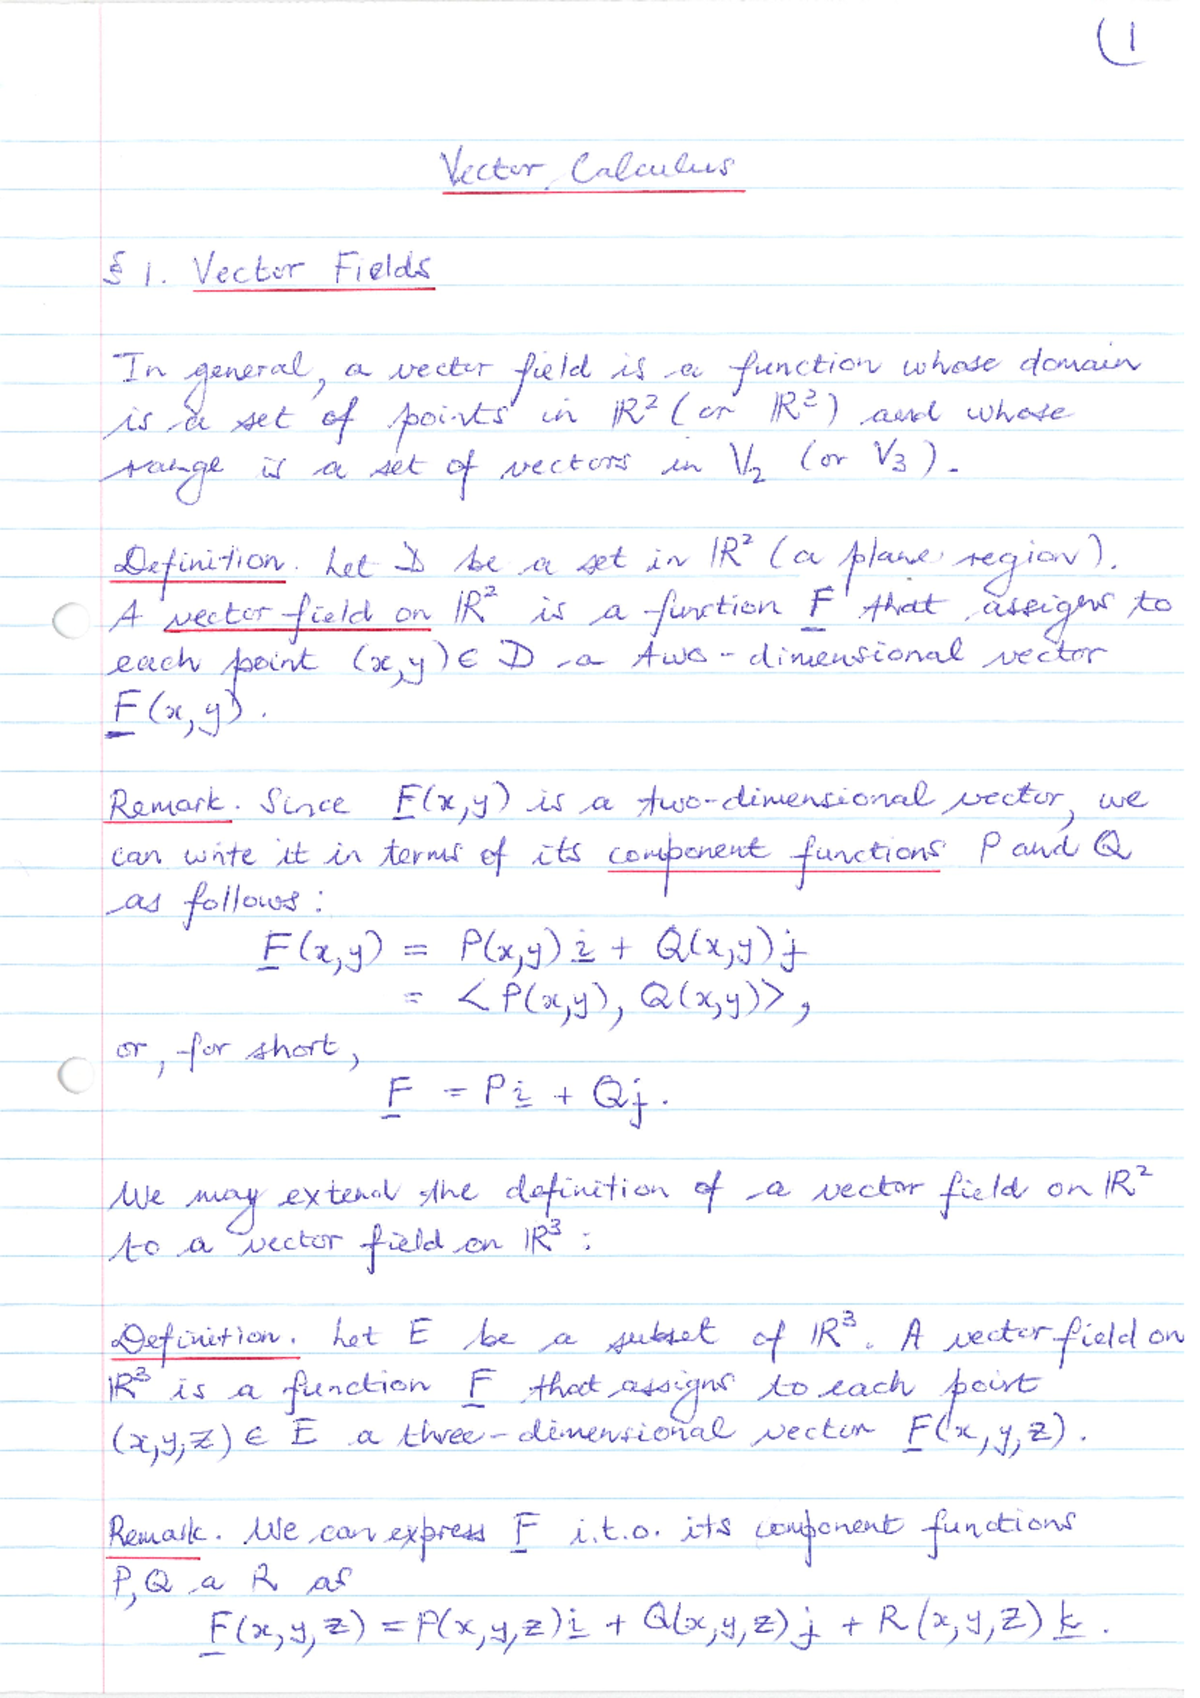 (1
Vector Calculus
§ 1. Vector Fields
In general, a vector field is a function whose domain
is a set of points in ℝ² (or ℝ³) and whose
range is a set of vectors in V₂ (or V₃).
Definition. Let D be a set in ℝ² (a plane region).
A vector field on ℝ² is a function F that assigns to
each point (x,y) ∈ D a two-dimensional vector
F(x,y).
Remark. Since F(x,y) is a two-dimensional vector, we
can write it in terms of its component functions P and Q
as follows:
F(x,y) = P(x,y) i + Q(x,y) j
= <P(x,y), Q(x,y)>,
or, for short,
F = P i + Q j.
We may extend the definition of a vector field on ℝ²
to a vector field on ℝ³:
Definition. Let E be a subset of ℝ³. A vector field on
ℝ³ is a function F that assigns to each point
(x,y,z) ∈ E a three-dimensional vector F(x,y,z).
Remark. We can express F i.t.o. its component functions
P, Q a R as
F(x,y,z) = P(x,y,z) i + Q(x,y,z) j + R(x,y,z) k.